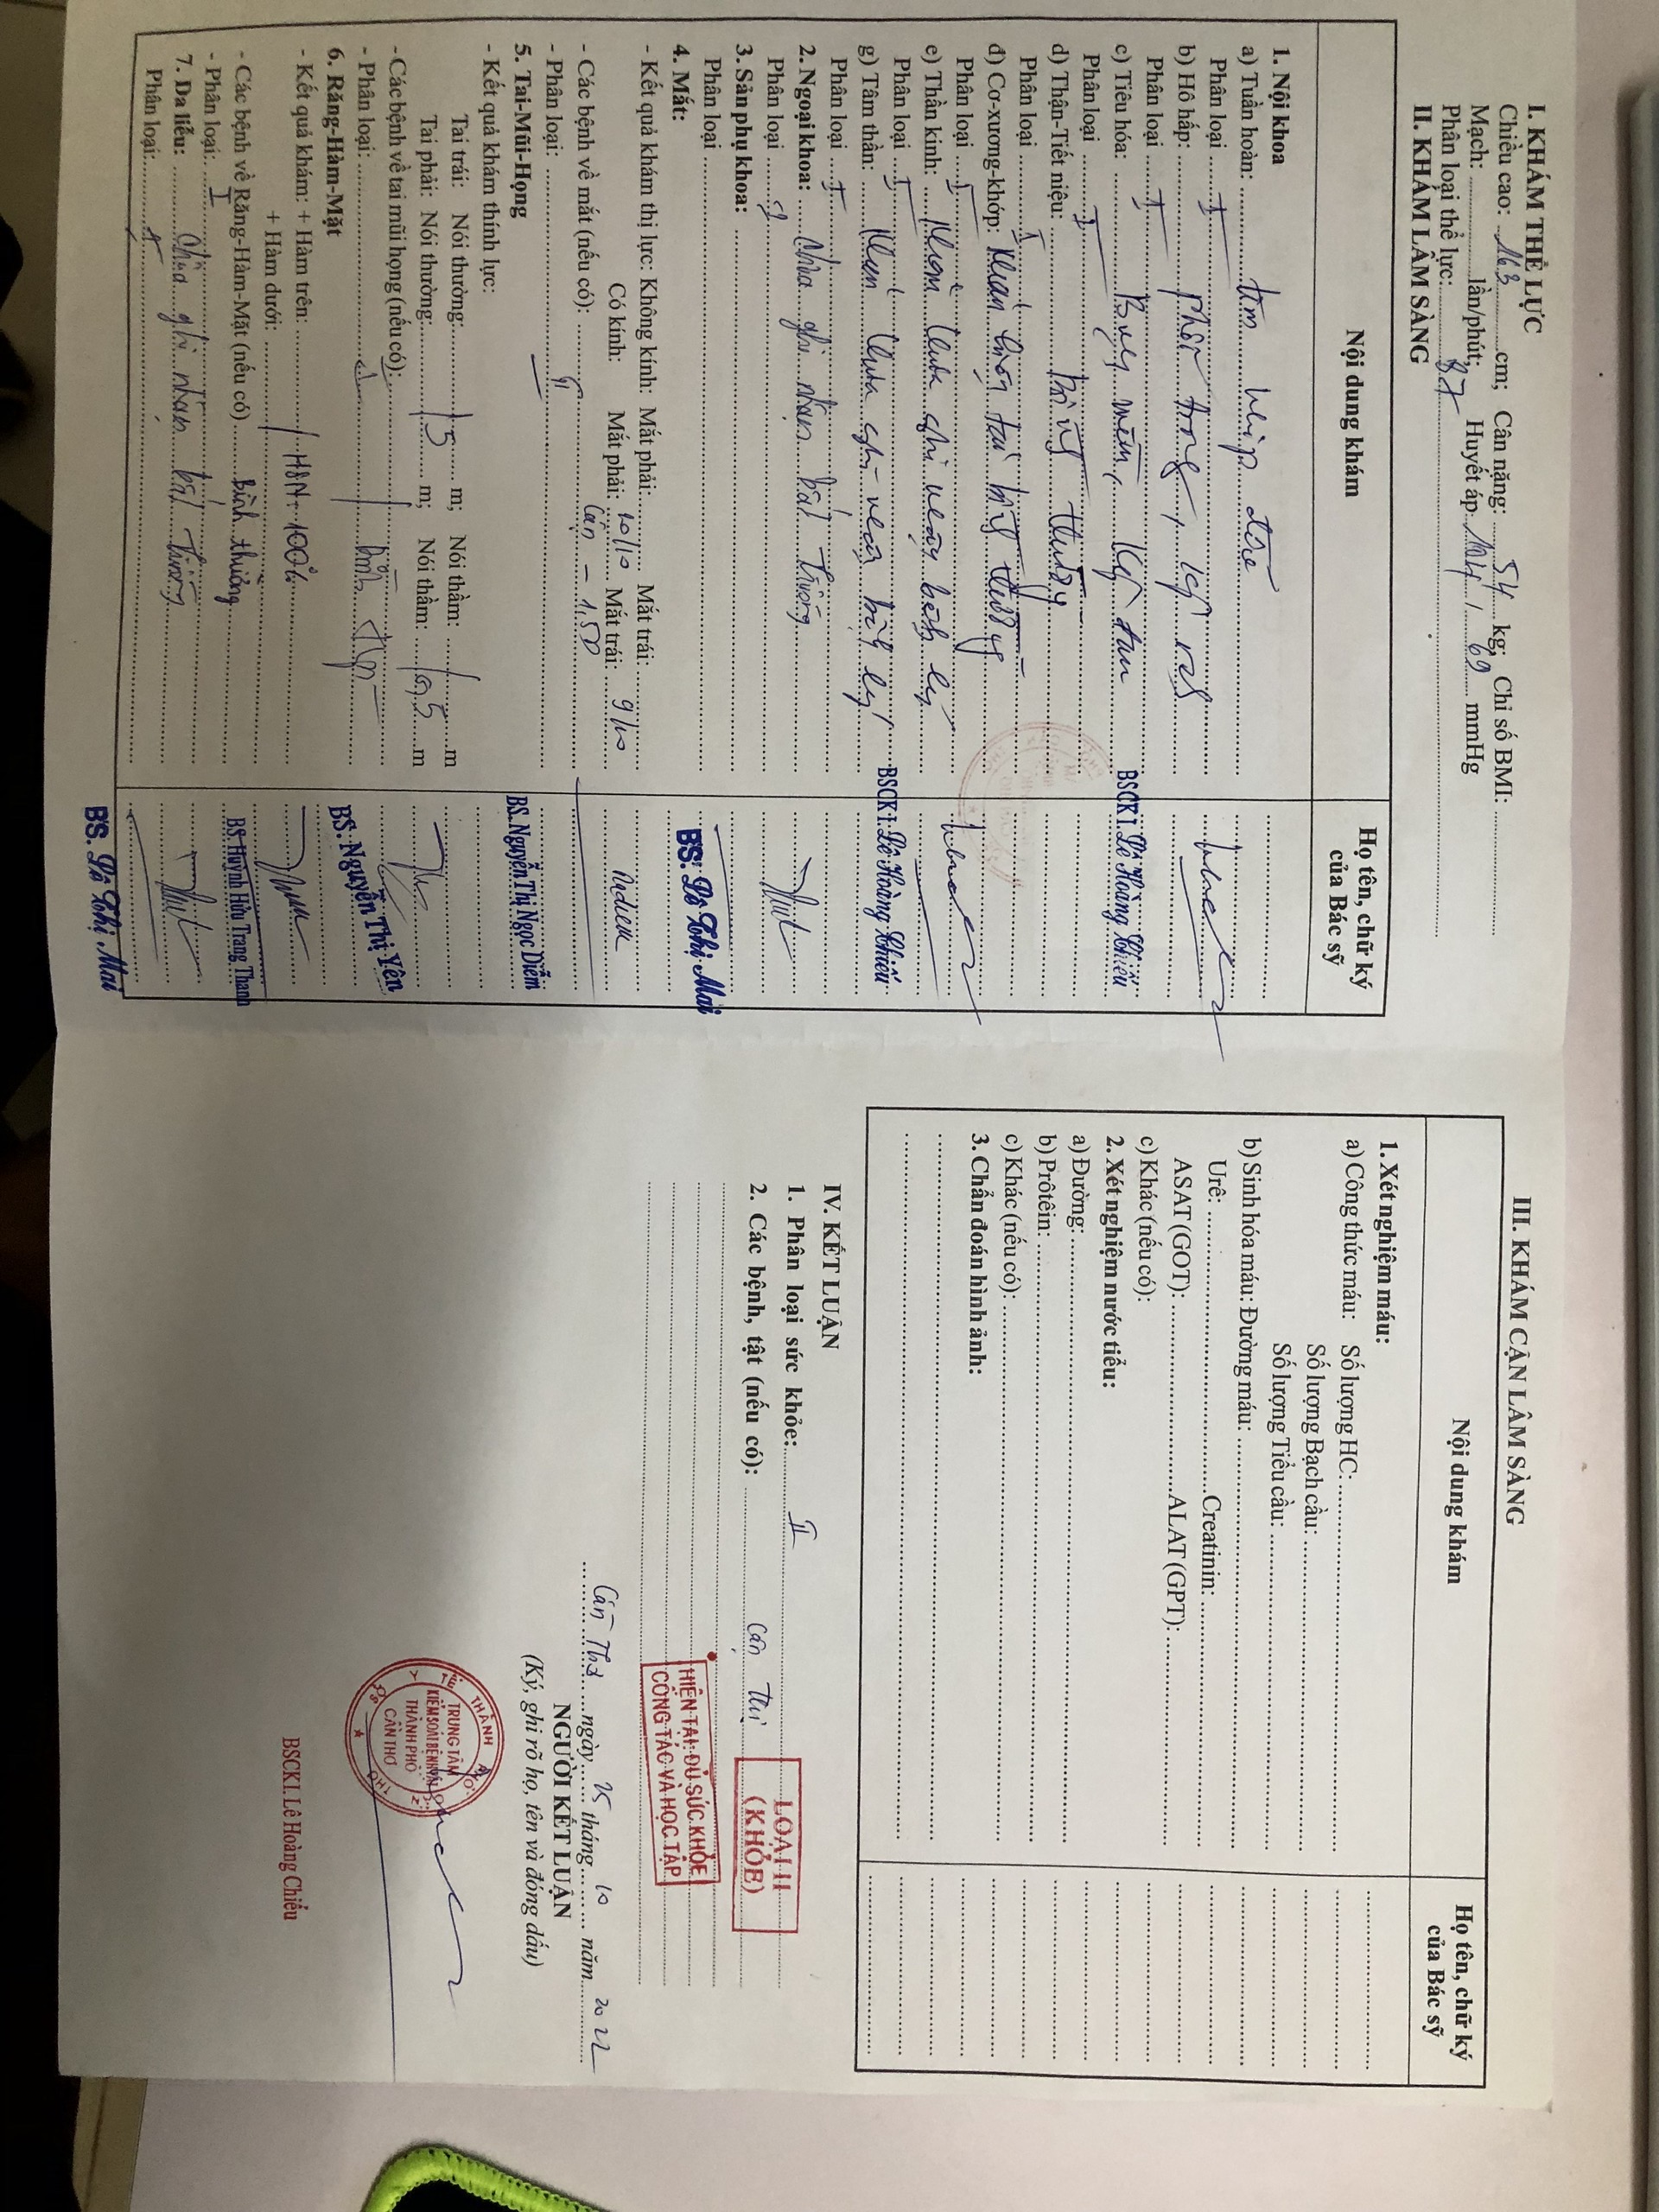 I. KHÁM THỂ LỰC
Chiều cao: 163 cm; Cân nặng: 54 kg; Chỉ số BMI:
Mạch: lần/phút; Huyết áp / 69 mmHg
Phân loại thể lực: 87
II. KHÁM LÂM SÀNG
Nội dung khám
Họ tên, chữ ký của Bác sỹ
1. Nội khoa
a) Tuần hoàn: tim nhịp đều
Phân loại I
b) Hô hấp: phổi trong,
Phân loại I
c) Tiêu hóa: Bụng mềm,
BSCK1. Lê Hoàng Chiểu
Phân loại I
d) Thận-Tiết niệu: bình thường
Phân loại I
đ) Cơ-xương-khớp:
Phân loại I
e) Thần kinh:
Phân loại I
g) Tâm thần:
BSCK1. Lê Hoàng Chiểu
Phân loại I
2. Ngoại khoa: Chưa ghi nhận bất thường
Phân loại
3. Sản phụ khoa:
Phân loại
BS. Lê Thị Mai
4. Mắt:
- Kết quả khám thị lực: Không kính: Mắt phải: Mắt trái:
Có kính: Mắt phải: 10/10 Mắt trái: 9/10
- Các bệnh về mắt (nếu có): Cận - 1,50
- Phân loại:
BS. Nguyễn Thị Ngọc Diễm
5. Tai-Mũi-Họng
- Kết quả khám thính lực:
Tai trái: Nói thường: m; Nói thầm: m
Tai phải: Nói thường: 5 m; Nói thầm: 0,5 m
- Các bệnh về tai mũi họng (nếu có):
- Phân loại:
BS. Nguyễn Thị Yên
6. Răng-Hàm-Mặt
- Kết quả khám: + Hàm trên:
+ Hàm dưới: 100%
- Các bệnh về Răng-Hàm-Mặt (nếu có) Bình thường
BS. Huỳnh Hữu Trang Thanh
- Phân loại: I
7. Da liễu: Chưa ghi nhận bất thường
Phân loại:
BS. Lê Thị Mai
III. KHÁM CẬN LÂM SÀNG
Nội dung khám
Họ tên, chữ ký của Bác sỹ
1. Xét nghiệm máu:
a) Công thức máu: Số lượng HC:
Số lượng Bạch cầu:
Số lượng Tiểu cầu:
b) Sinh hóa máu: Đường máu:
Urê: Creatinin:
ASAT (GOT): ALAT (GPT):
c) Khác (nếu có):
2. Xét nghiệm nước tiểu:
a) Đường:
b) Prôtêin:
c) Khác (nếu có):
3. Chẩn đoán hình ảnh:
IV. KẾT LUẬN
1. Phân loại sức khỏe: II
LOẠI II
(KHỎE)
2. Các bệnh, tật (nếu có): Cận thị
HIỆN TẠI ĐỦ SỨC KHỎE
CÔNG TÁC VÀ HỌC TẬP
Cần Thơ ngày 25 tháng 10 năm 2022
NGƯỜI KẾT LUẬN
(Ký, ghi rõ họ, tên và đóng dấu)
TRUNG TÂM
KIỂM SOÁT BỆNH TẬT
THÀNH PHỐ
CẦN THƠ
BSCK1. Lê Hoàng Chiểu